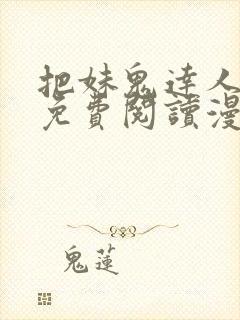 把妹鬼達人
免費閱讀漫
鬼蓮